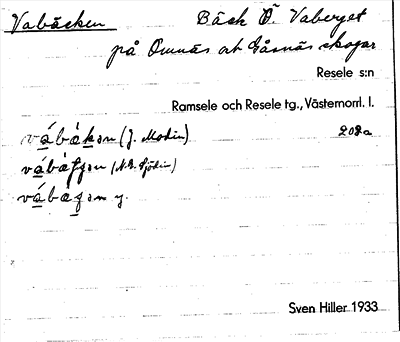 Vabäcken Bäck Ö. Vaberget
på Omnäs och Gåsnäs skogar
Resele s:n
Ramsele och Resele tg., Västernorrl. l.
vábàkən (J. Modin) 202a
(N.E. Sjödin)
Sven Hiller 1933